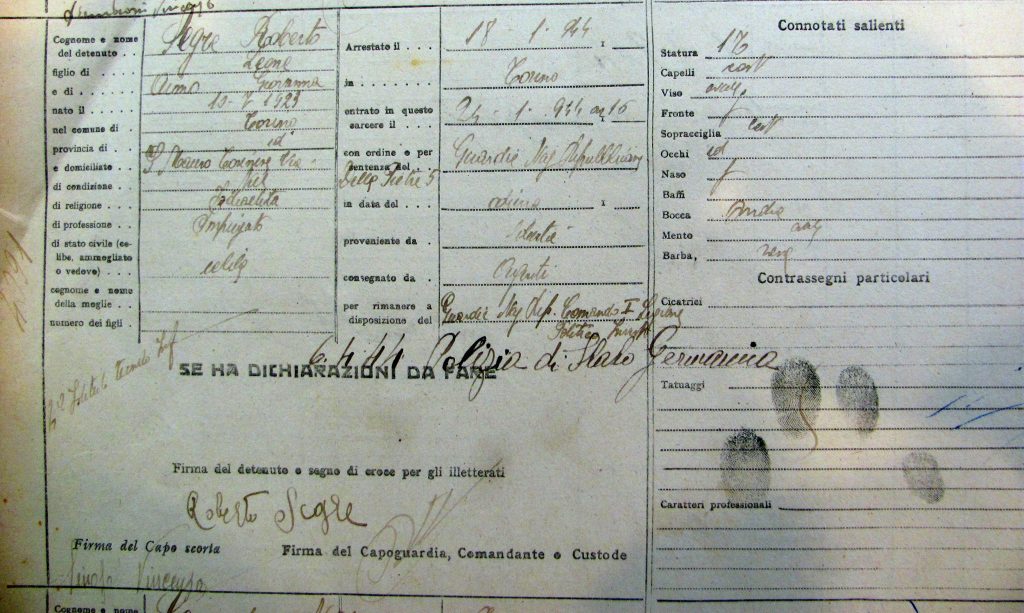 Cognome e nome
del detenuto . . Segre Roberto
figlio di . . . . Leone
e di . . . . . Giovanna
nato il . . . . 1923
nel comune di . Torino
provincia di . . id
e domiciliato . S. Mauro Torinese Via
di condizione .
di religione . . Israelita
di professione . . Impiegato
di stato civile (ce-
libe, ammogliato
o vedovo) . . . celibe
cognome e nome
della moglie . .
numero dei figli .
Arrestato il . . . 18 1 - 944
in . . . . . . Torino
entrato in questo
carcere il . . . 24 - 1 - 944 ore 15
con ordine o per
sentenza del . . Guardia Naz Repubblicana
Delle Pietre 5
in data del . . . odierna
proveniente da . Libertà
consegnato da . Agenti
per rimanere a
disposizione del Guardia Naz Rep. Comando I Legione
Politico
6.4.44 Polizia di Stato Germania
SE HA DICHIARAZIONI DA FARE
Firma del detenuto o segno di croce per gli illetterati
Roberto Segre
Firma del Capo scorta
Firma del Capoguardia, Comandante o Custode
Connotati salienti
Statura 17
Capelli cast
Viso oval.
Fronte
Sopracciglia cast
Occhi id
Naso
Baffi
Bocca
Mento
Barba,
Contrassegni particolari
Cicatrici
Tatuaggi
Caratteri professionali
Cognome e nome